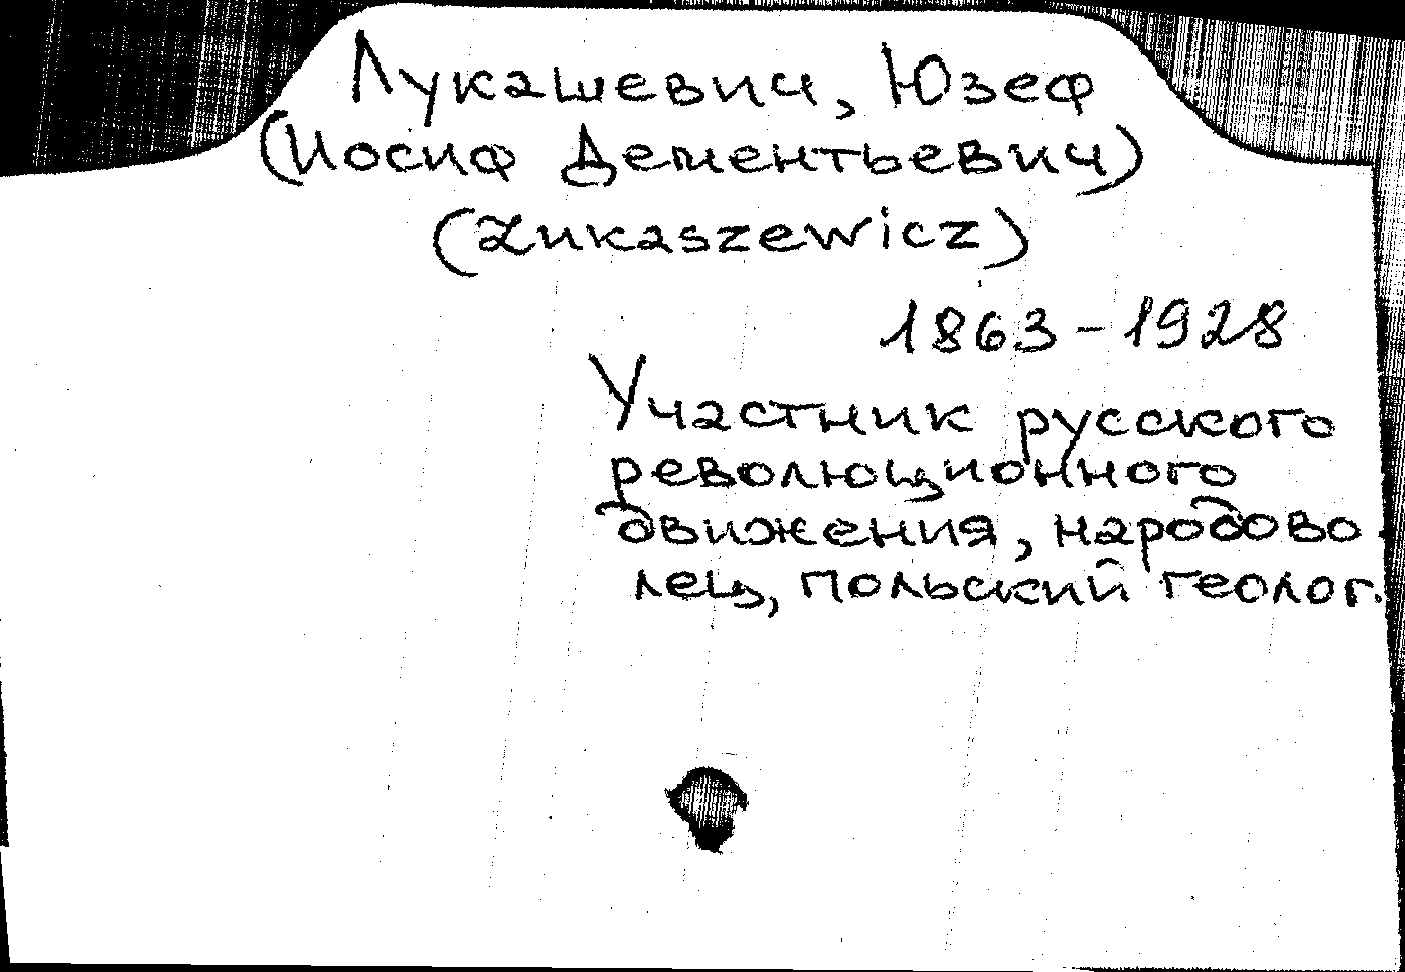 Лукашевич, Юзеф
(Иосиф Дементьевич)
(Łukaszewicz)
1863-1928
Участник русского
революционного
движения, народово
лец, польский геолог.